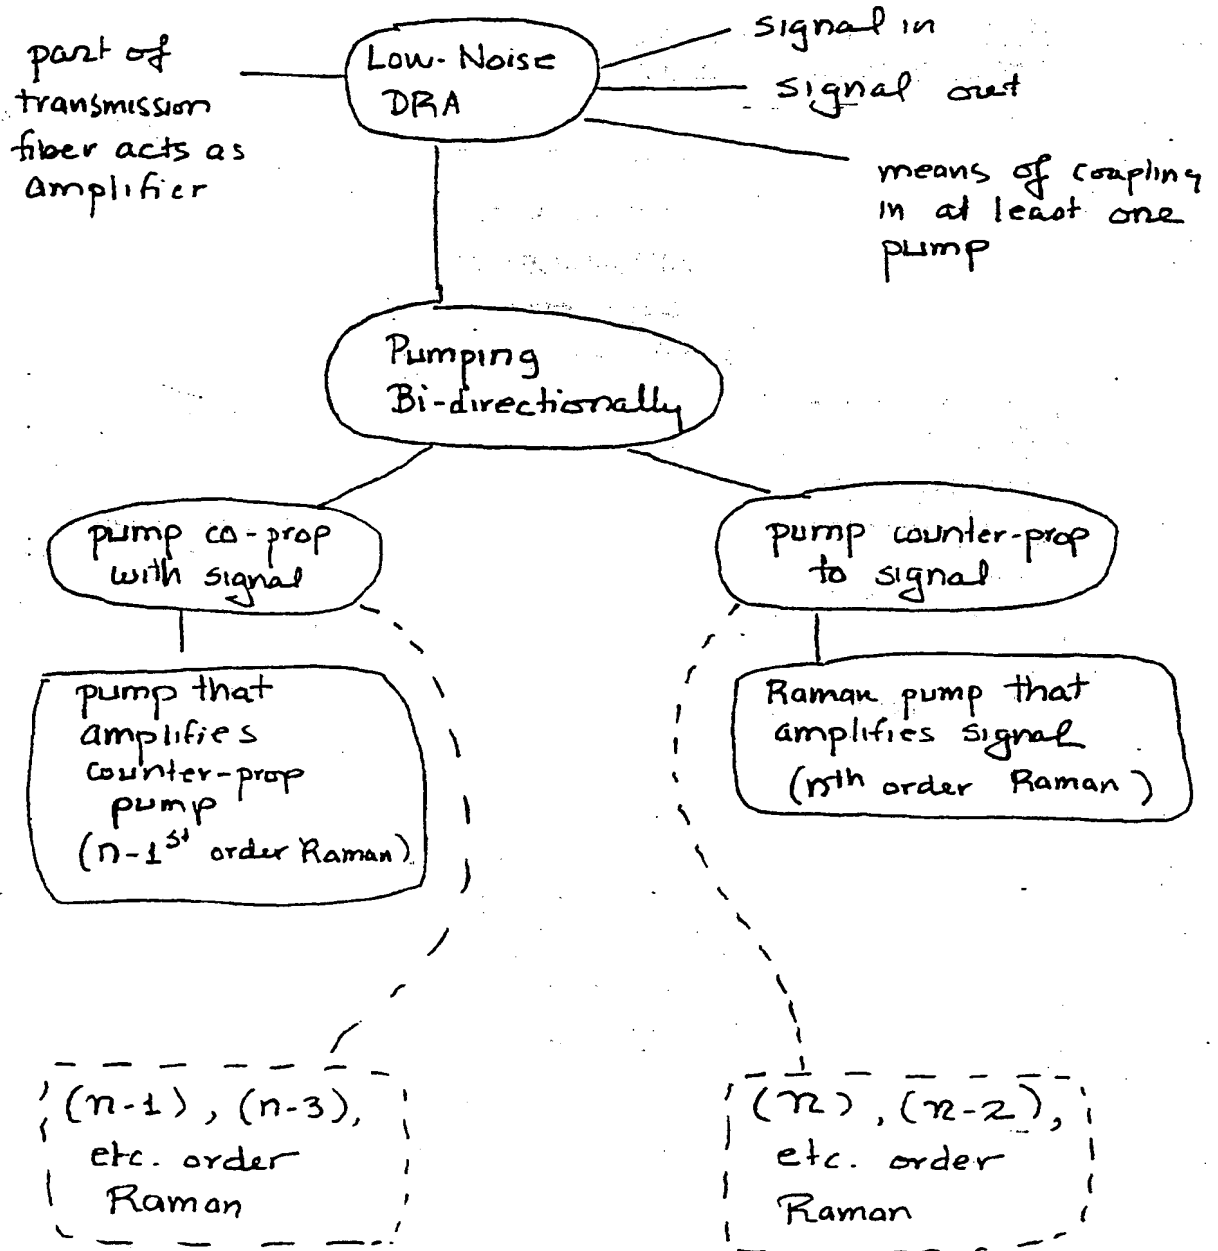 part of
transmission
fiber acts as
amplifier
Low-Noise
DRA
signal in
signal out
means of coupling
in at least one
pump
Pumping
Bi-directionally
pump co-prop
with signal
pump counter-prop
to signal
pump that
amplifies
counter-prop
pump
(n-1st order Raman)
Raman pump that
amplifies signal
(nth order Raman)
(n-1), (n-3),
etc. order
Raman
(n), (n-2),
etc. order
Raman